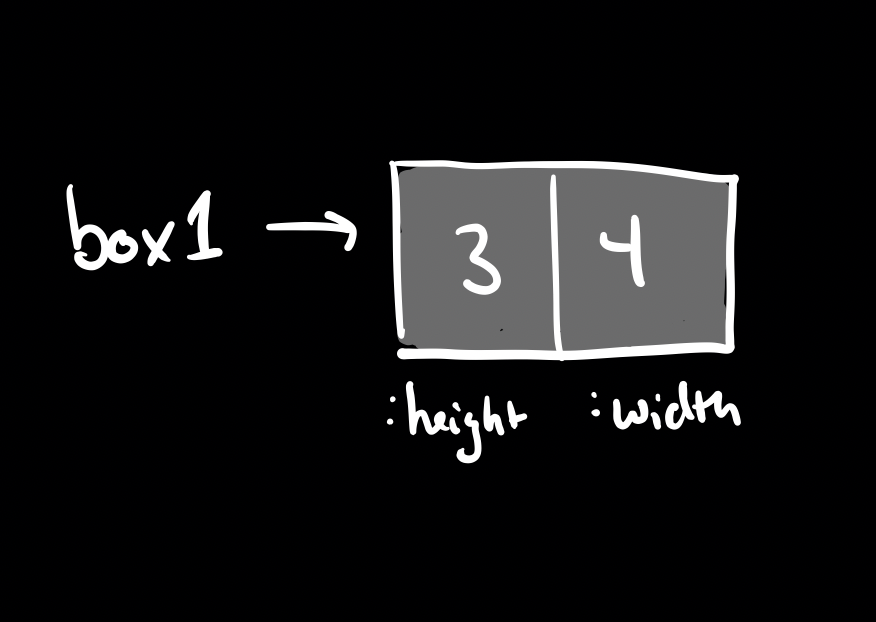 box1 → 3 4
:height :width